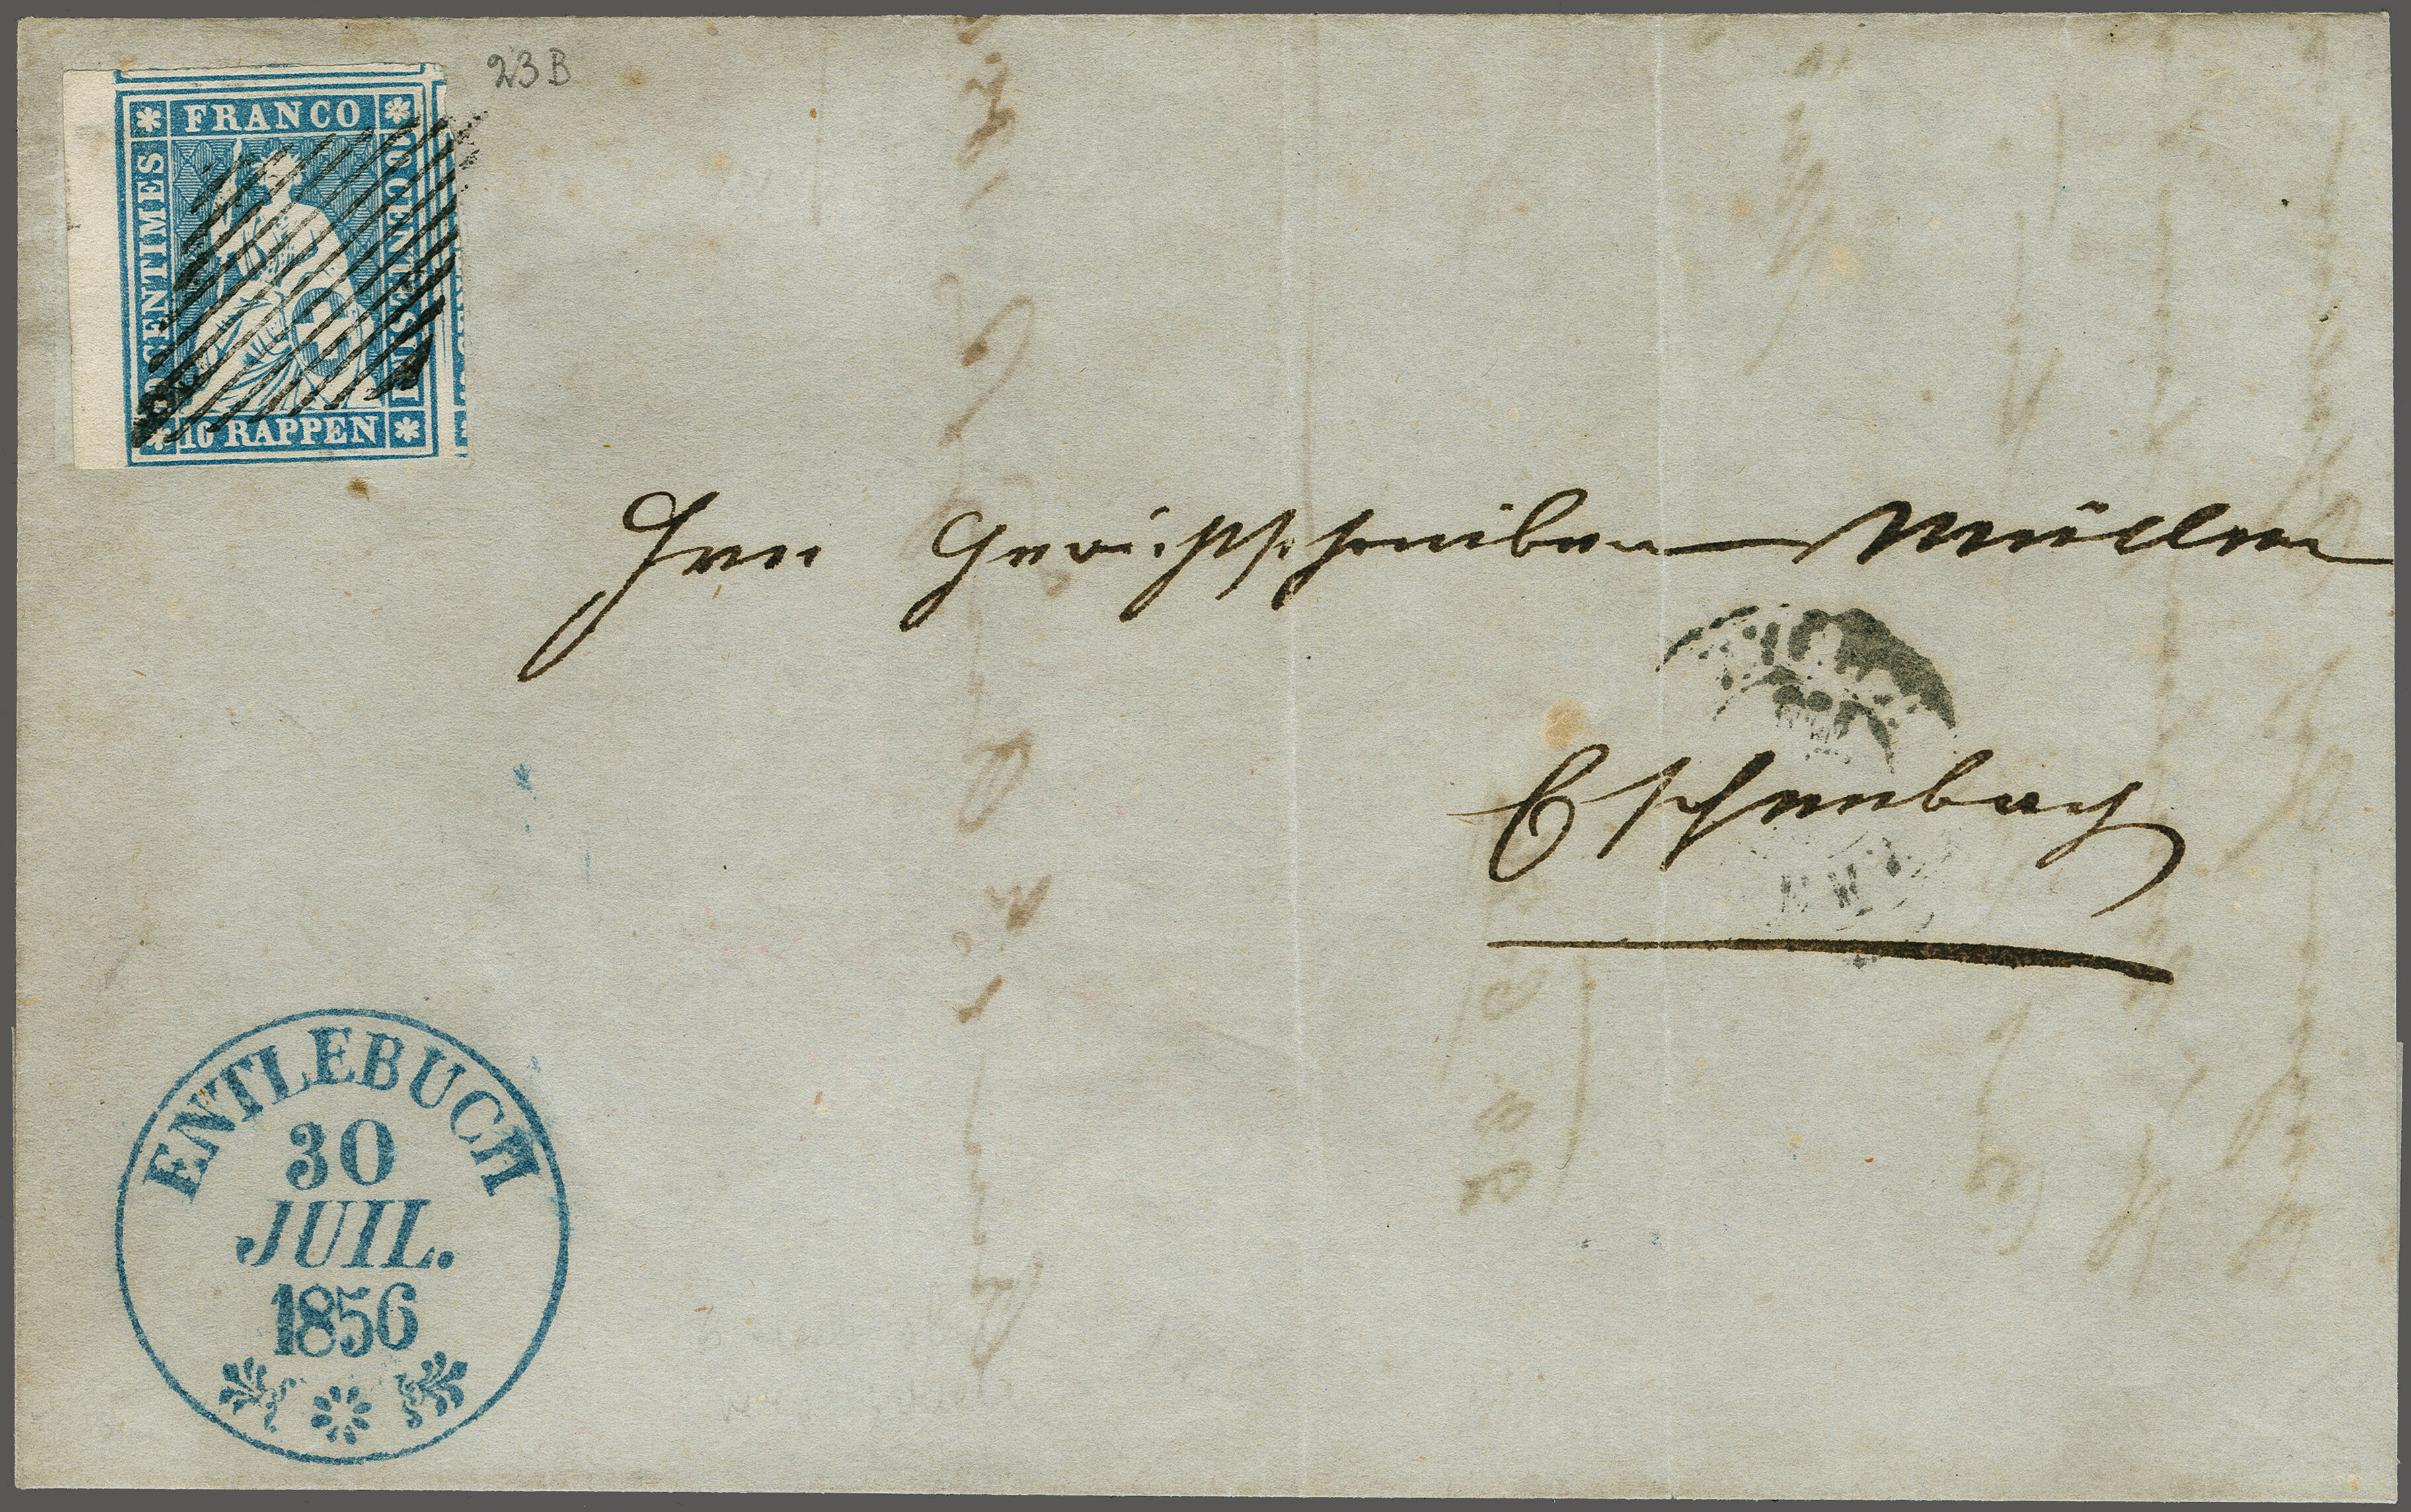 23B
FRANCO
10 CENTIMES
10 CENTESIMI
10 RAPPEN
Herrn Gerichtschreiber Müller
Eschenbach
ENTLEBUCH
30
JUIL.
1856